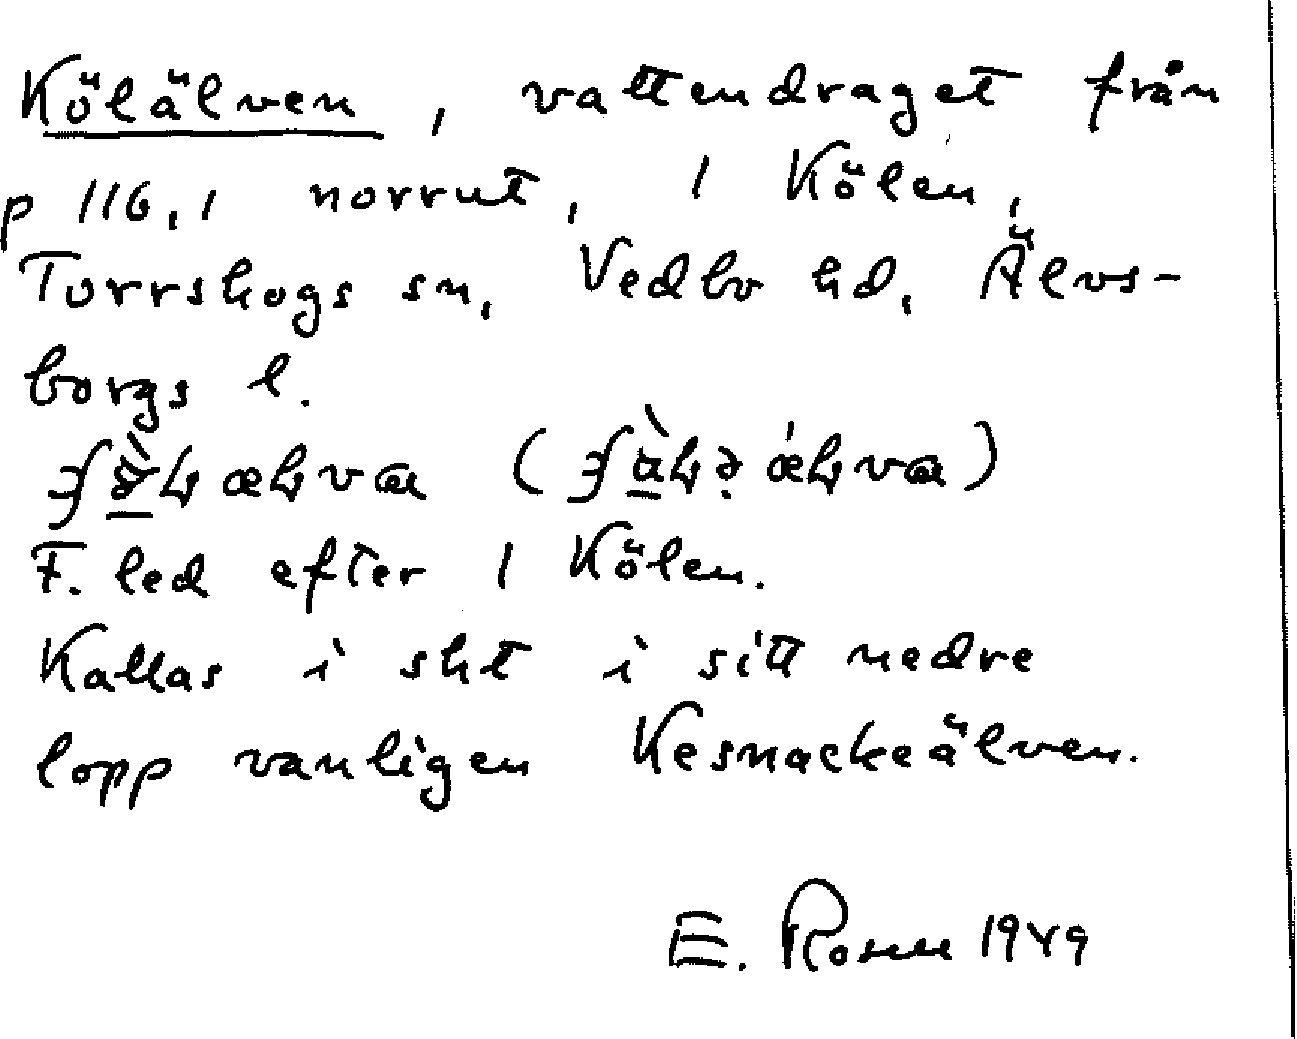 Kölälven, vattendraget från
p 116,1 norrut, 1 Kölen,
Torrskogs sn, Vedbo hd, Älvs-
borgs l.
F. led efter 1 Kölen.
Kallas i sht i sitt nedre
lopp vanligen Kesnackeälven.
E. Rosell 1949